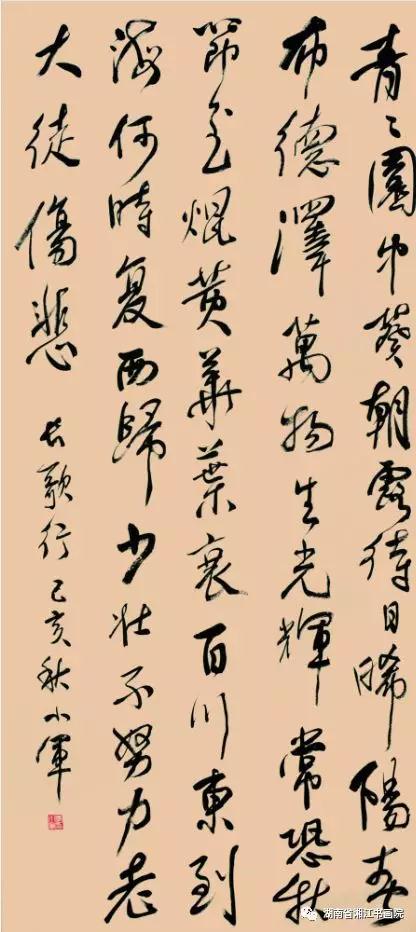 青〻園中葵朝露待日晞陽春
布德澤萬物生光輝常恐秋
節至焜黄華葉衰百川東到
海何時复西歸少壯不努力老
大徒傷悲 長歌行 己亥秋小軍
湖南省湘江书画院